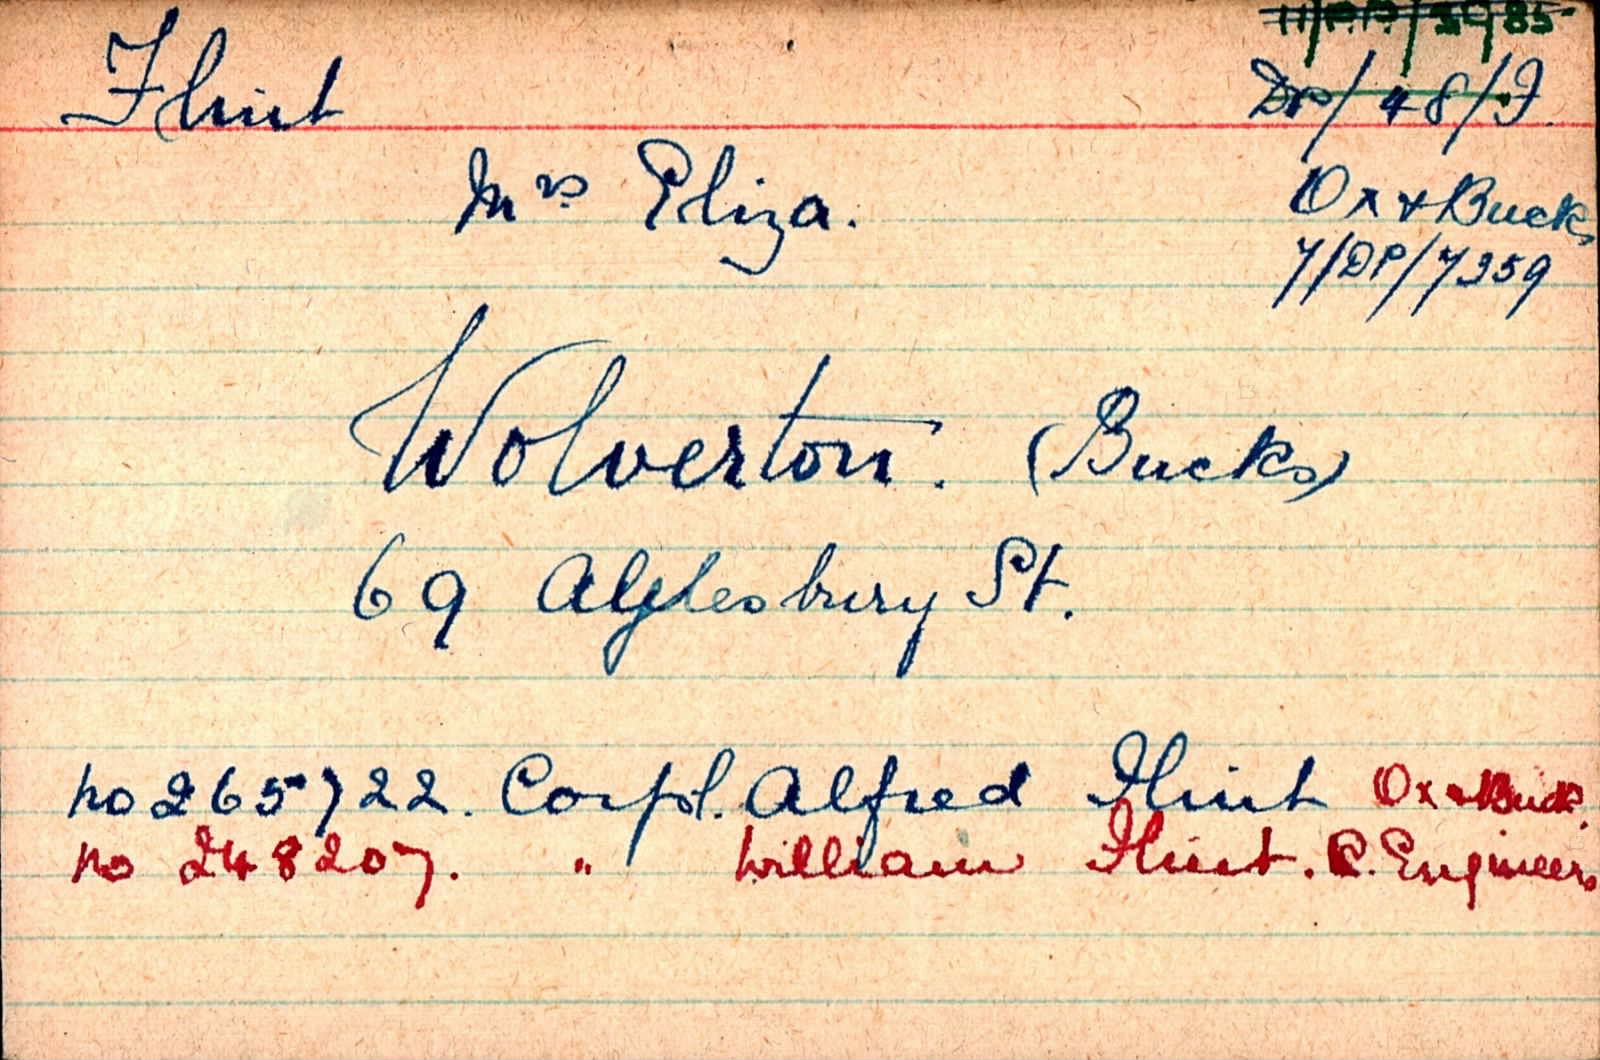 11/P.P./5985
Flint
DP/48/F.
Mrs Eliza.
Ox & Bucks
7/DP/7359
Wolverton. (Bucks)
69 Aylesbury St.
No 265722. Corpl. Alfred Flint Ox & Bucks.
No 248207. " William Flint. R. Engineers